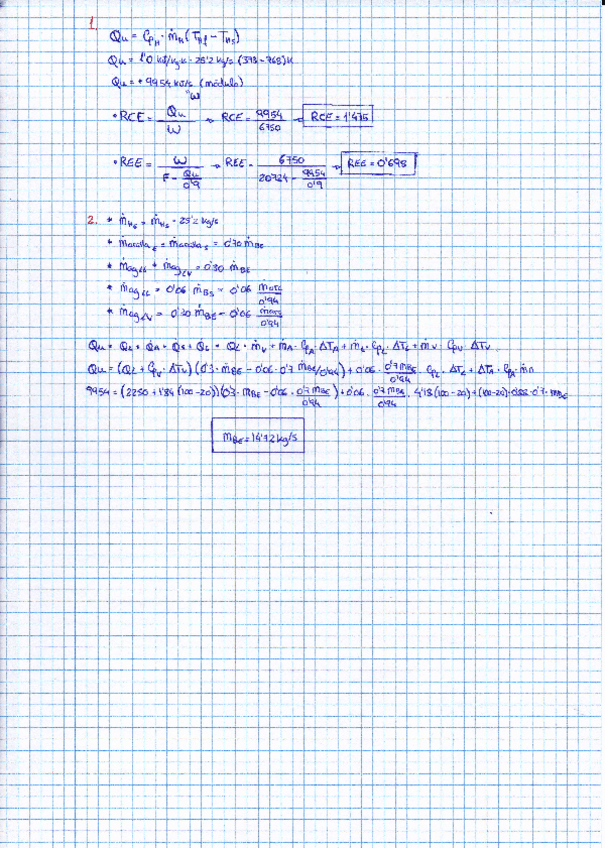 1.
Qu = CpH · ṁH (THf - THs)
Qu = 1'0 kJ/kgK · 25'2 kg/s (373 - 768) K
Qu = + 9954 kJ/s (módulo)
W
• RCE = Qu / W → RCE = 9954 / 6750 → RCE = 1'475
• REE = W / (F - Qu/0'9) → REE = 6750 / (20724 - 9954/0'9) → REE = 0'695
2. * ṁHE = ṁHS = 25'2 kg/s
* ṁarcillaE = ṁarcillaS = 0'70 ṁBE
* ṁagLS + ṁagLV = 0'30 ṁBE
* ṁagLS = 0'06 ṁBS = 0'06 ṁarc/0'94
* ṁagLV = 0'30 ṁBE - 0'06 ṁarc/0'94
Qu = QL + QA + QS + QL = QL · ṁV + ṁA · CpA · ΔTA + ṁL · CpL · ΔTL + ṁV · CpV · ΔTV
Qu = (QL + CpV · ΔTV) (0'3 · ṁBE - 0'06 · 0'7 ṁBE/0'94) + 0'06 · 0'7 ṁBE/0'94 · CpL · ΔTL + ΔTA · CpA · ṁA
9954 = (2250 + 1'84 (100-20)) (0'3 · ṁBE - 0'06 · 0'7 ṁBE/0'94) + 0'06 · 0'7 ṁBE/0'94 · 4'18 (100-20) + (100-20) · 0'7 · ṁBE
ṁBE = 14'12 kg/s